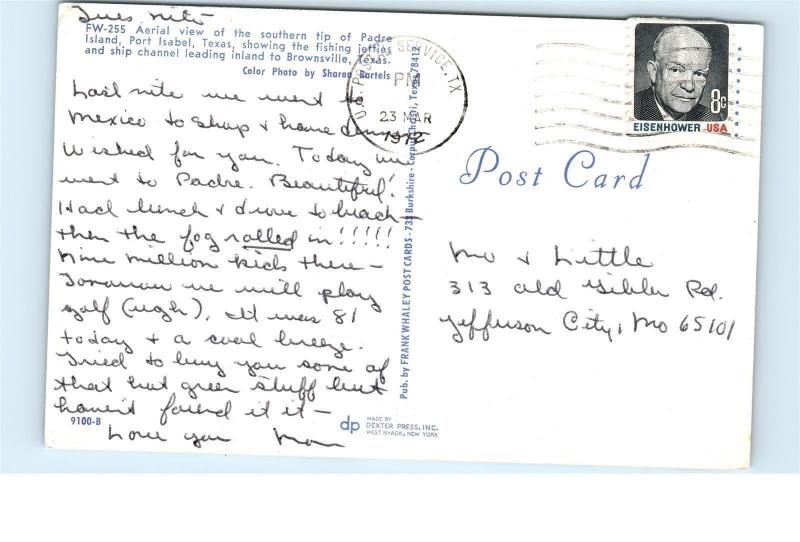 Tues nite
FW-255 Aerial view of the southern tip of Padre
Island, Port Isabel, Texas, showing the fishing jetties
and ship channel leading inland to Brownsville, Texas.
Color Photo by Sharon Bartels
Last nite we went to
Mexico to shop & have dinner
Wished for you. Today we
went to Padre. Beautiful!
Had lunch & drove to beach -
then the fog rolled in!!!!!
Nine million kids there -
Tomorrow we will play
golf (ugh). It was 81
today & a cool breeze.
Tried to buy you some of
that hot green stuff but
haven't found it it -
Love you Mom
9100-B
Pub. by FRANK WHALEY POST CARDS - 733 Burkshire - Corpus Christi, Texas 78412
dp
MADE BY
DEXTER PRESS, INC.
WEST NYACK, NEW YORK
U.S. POSTAL SERVICE, TX
PM
23 MAR
1972
8c
EISENHOWER USA
Post Card
Mo & Little
313 Old Gibler Rd.
Jefferson City, Mo 65101